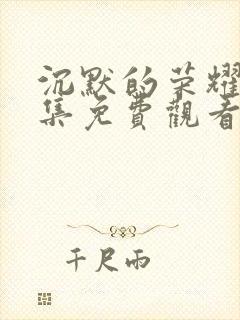 沉默的荣耀
集免費觀看
千尺雨